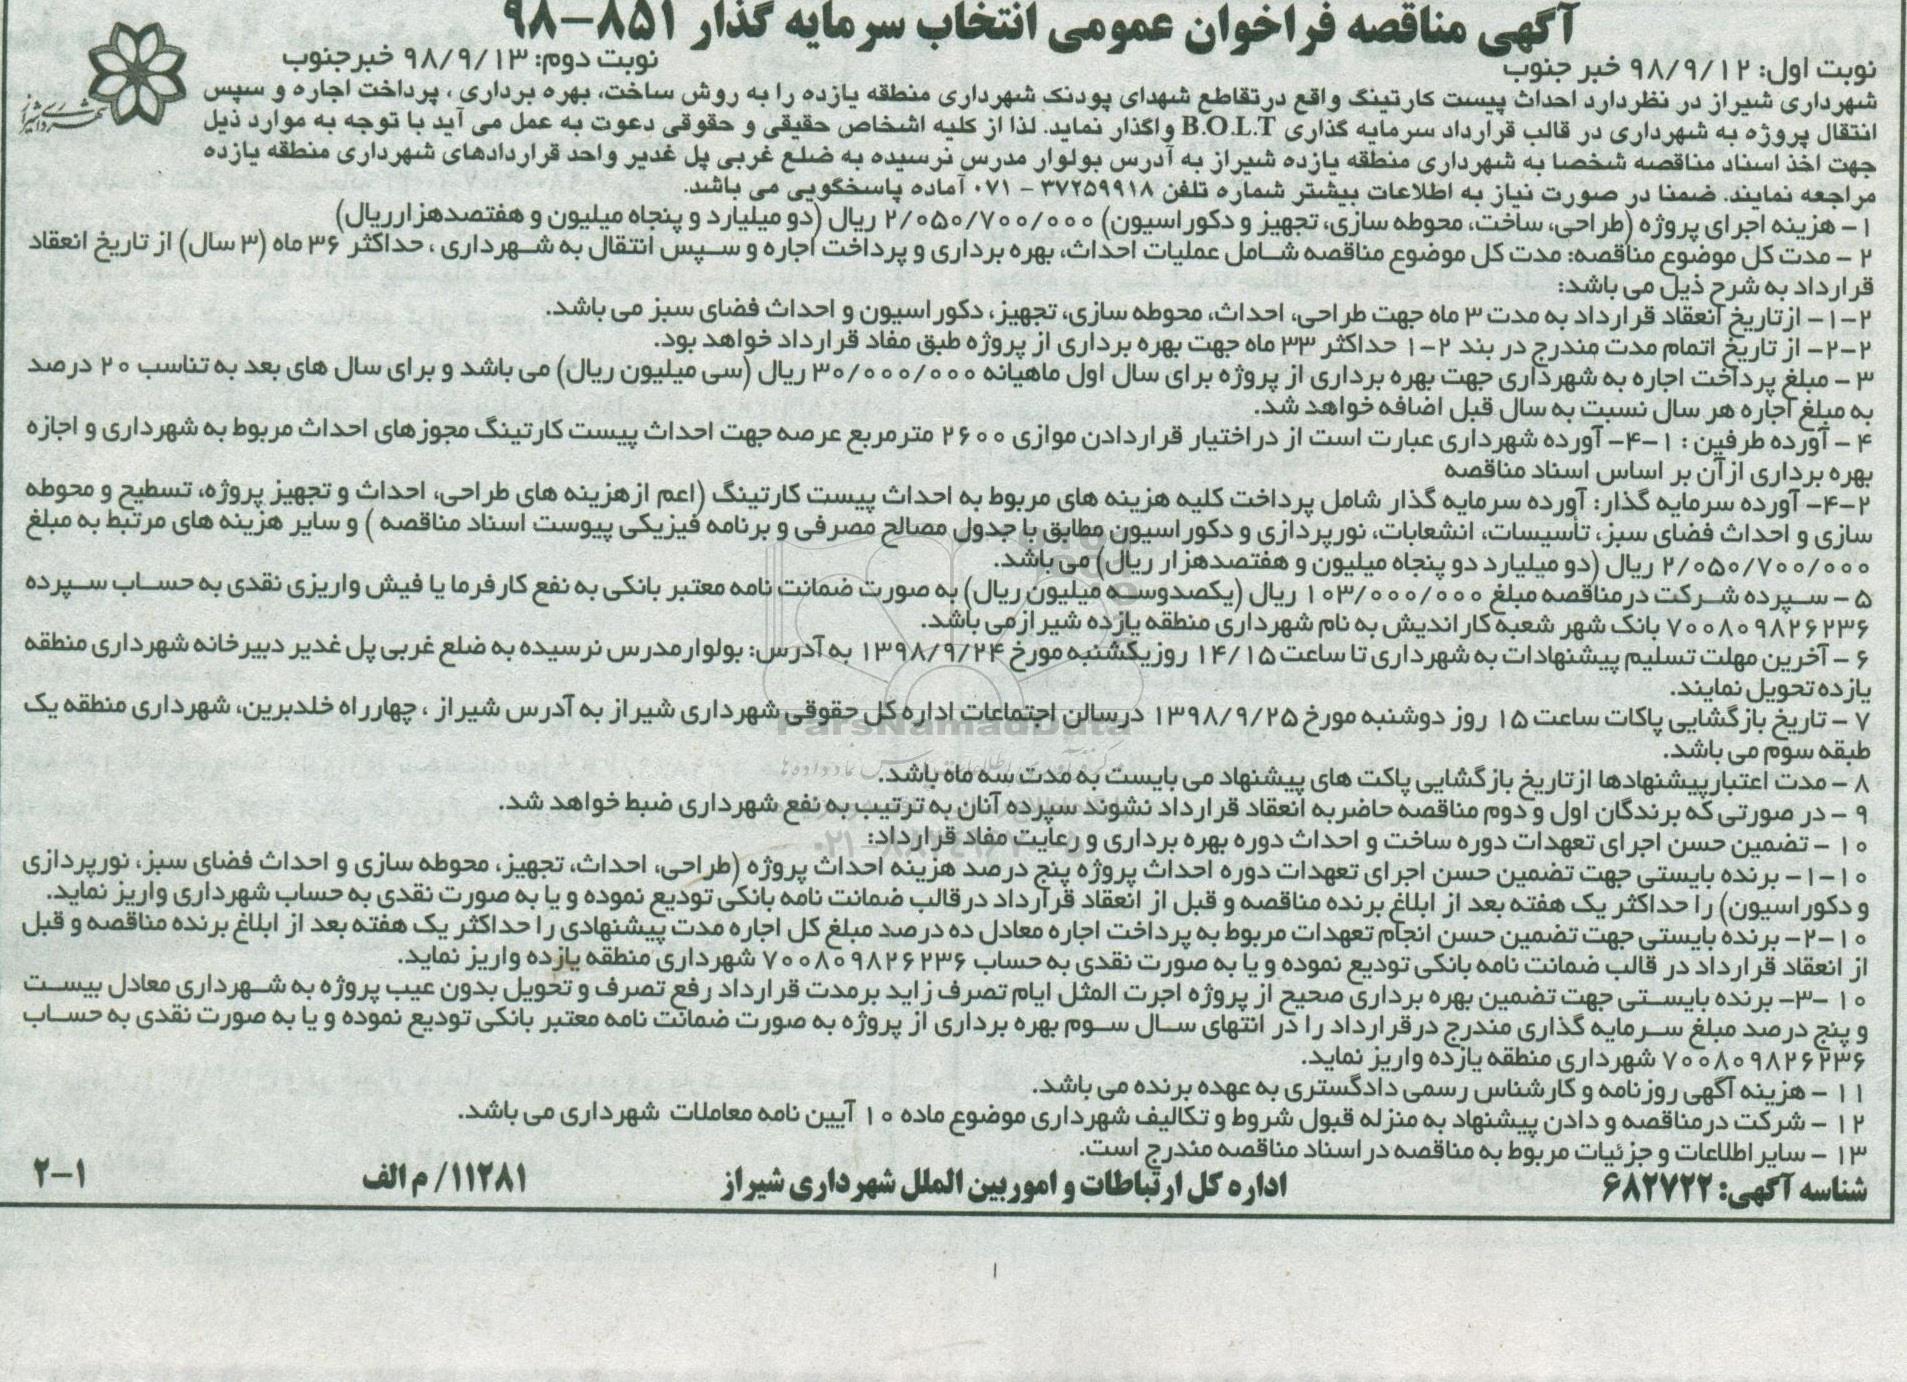 آگهی مناقصه فراخوان عمومی انتخاب سرمایه گذار ۸۵۱-۹۸
نوبت اول: ۹۸/۹/۱۲ خبر جنوب
نوبت دوم: ۹۸/۹/۱۳ خبرجنوب
شهرداری شیراز
شهرداری شیراز در نظردارد احداث پیست کارتینگ واقع درتقاطع شهدای پودنک شهرداری منطقه یازده را به روش ساخت، بهره برداری ، پرداخت اجاره و سپس
انتقال پروژه به شهرداری در قالب قرارداد سرمایه گذاری B.O.L.T واگذار نماید. لذا از کلیه اشخاص حقیقی و حقوقی دعوت به عمل می آید با توجه به موارد ذیل
جهت اخذ اسناد مناقصه شخصا به شهرداری منطقه یازده شیراز به آدرس بولوار مدرس نرسیده به ضلع غربی پل غدیر واحد قراردادهای شهرداری منطقه یازده
مراجعه نمایند. ضمنا در صورت نیاز به اطلاعات بیشتر شماره تلفن ۳۷۲۵۹۹۱۸ - ۰۷۱ آماده پاسخگویی می باشد.
۱- هزینه اجرای پروژه (طراحی، ساخت، محوطه سازی، تجهیز و دکوراسیون) ۲/۰۵۰/۷۰۰/۰۰۰ ریال (دو میلیارد و پنجاه میلیون و هفتصدهزارریال)
۲ - مدت کل موضوع مناقصه: مدت کل موضوع مناقصه شامل عملیات احداث، بهره برداری و پرداخت اجاره و سپس انتقال به شهرداری ، حداکثر ۳۶ ماه (۳ سال) از تاریخ انعقاد
قرارداد به شرح ذیل می باشد:
۲-۱- ازتاریخ انعقاد قرارداد به مدت ۳ ماه جهت طراحی، احداث، محوطه سازی، تجهیز، دکوراسیون و احداث فضای سبز می باشد.
۲-۲- از تاریخ اتمام مدت مندرج در بند ۲-۱ حداکثر ۳۳ ماه جهت بهره برداری از پروژه طبق مفاد قرارداد خواهد بود.
۳ - مبلغ پرداخت اجاره به شهرداری جهت بهره برداری از پروژه برای سال اول ماهیانه ۳۰/۰۰۰/۰۰۰ ریال (سی میلیون ریال) می باشد و برای سال های بعد به تناسب ۲۰ درصد
به مبلغ اجاره هر سال نسبت به سال قبل اضافه خواهد شد.
۴ - آورده طرفین : ۱-۴- آورده شهرداری عبارت است از دراختیار قراردادن موازی ۲۶۰۰ مترمربع عرصه جهت احداث پیست کارتینگ مجوزهای احداث مربوط به شهرداری و اجازه
بهره برداری ازآن بر اساس اسناد مناقصه
۲-۴- آورده سرمایه گذار: آورده سرمایه گذار شامل پرداخت کلیه هزینه های مربوط به احداث پیست کارتینگ (اعم ازهزینه های طراحی، احداث و تجهیز پروژه، تسطیح و محوطه
سازی و احداث فضای سبز، تأسیسات، انشعابات، نورپردازی و دکوراسیون مطابق با جدول مصالح مصرفی و برنامه فیزیکی پیوست اسناد مناقصه ) و سایر هزینه های مرتبط به مبلغ
۲/۰۵۰/۷۰۰/۰۰۰ ریال (دو میلیارد دو پنجاه میلیون و هفتصدهزار ریال) می باشد.
۵ - سپرده شرکت درمناقصه مبلغ ۱۰۳/۰۰۰/۰۰۰ ریال (یکصدوسه میلیون ریال) به صورت ضمانت نامه معتبر بانکی به نفع کارفرما یا فیش واریزی نقدی به حساب سپرده
۷۰۰۸۰۹۸۲۶۲۳۶ بانک شهر شعبه کاراندیش به نام شهرداری منطقه یازده شیرازمی باشد.
۶ - آخرین مهلت تسلیم پیشنهادات به شهرداری تا ساعت ۱۴/۱۵ روزیکشنبه مورخ ۱۳۹۸/۹/۲۴ به آدرس: بولوارمدرس نرسیده به ضلع غربی پل غدیر دبیرخانه شهرداری منطقه
یازده تحویل نمایند.
۷ - تاریخ بازگشایی پاکات ساعت ۱۵ روز دوشنبه مورخ ۱۳۹۸/۹/۲۵ درسالن اجتماعات اداره کل حقوقی شهرداری شیراز به آدرس شیراز ، چهارراه خلدبرین، شهرداری منطقه یک
طبقه سوم می باشد.
ParsNamadData
۸ - مدت اعتبارپیشنهادها ازتاریخ بازگشایی پاکت های پیشنهاد می بایست به مدت سه ماه باشد.
۹ - در صورتی که برندگان اول و دوم مناقصه حاضربه انعقاد قرارداد نشوند سپرده آنان به ترتیب به نفع شهرداری ضبط خواهد شد.
۱۰ - تضمین حسن اجرای تعهدات دوره ساخت و احداث دوره بهره برداری و رعایت مفاد قرارداد:
۱۰-۱- برنده بایستی جهت تضمین حسن اجرای تعهدات دوره احداث پروژه پنج درصد هزینه احداث پروژه (طراحی، احداث، تجهیز، محوطه سازی و احداث فضای سبز، نورپردازی
و دکوراسیون) را حداکثر یک هفته بعد از ابلاغ برنده مناقصه و قبل از انعقاد قرارداد درقالب ضمانت نامه بانکی تودیع نموده و یا به صورت نقدی به حساب شهرداری واریز نماید.
۱۰-۲- برنده بایستی جهت تضمین حسن انجام تعهدات مربوط به پرداخت اجاره معادل ده درصد مبلغ کل اجاره مدت پیشنهادی را حداکثر یک هفته بعد از ابلاغ برنده مناقصه و قبل
از انعقاد قرارداد در قالب ضمانت نامه بانکی تودیع نموده و یا به صورت نقدی به حساب ۷۰۰۸۰۹۸۲۶۲۳۶ شهرداری منطقه یازده واریز نماید.
۱۰ -۳- برنده بایستی جهت تضمین بهره برداری صحیح از پروژه اجرت المثل ایام تصرف زاید برمدت قرارداد رفع تصرف و تحویل بدون عیب پروژه به شهرداری معادل بیست
و پنج درصد مبلغ سرمایه گذاری مندرج درقرارداد را در انتهای سال سوم بهره برداری از پروژه به صورت ضمانت نامه معتبر بانکی تودیع نموده و یا به صورت نقدی به حساب
۷۰۰۸۰۹۸۲۶۲۳۶ شهرداری منطقه یازده واریز نماید.
۱۱ - هزینه آگهی روزنامه و کارشناس رسمی دادگستری به عهده برنده می باشد.
۱۲ - شرکت درمناقصه و دادن پیشنهاد به منزله قبول شروط و تکالیف شهرداری موضوع ماده ۱۰ آیین نامه معاملات شهرداری می باشد.
۱۳ - سایر اطلاعات و جزئیات مربوط به مناقصه در اسناد مناقصه مندرج است.
شناسه آگهی: ۶۸۲۷۲۲
اداره کل ارتباطات و اموربین الملل شهرداری شیراز
۱۱۲۸۱/ م الف
۲-۱